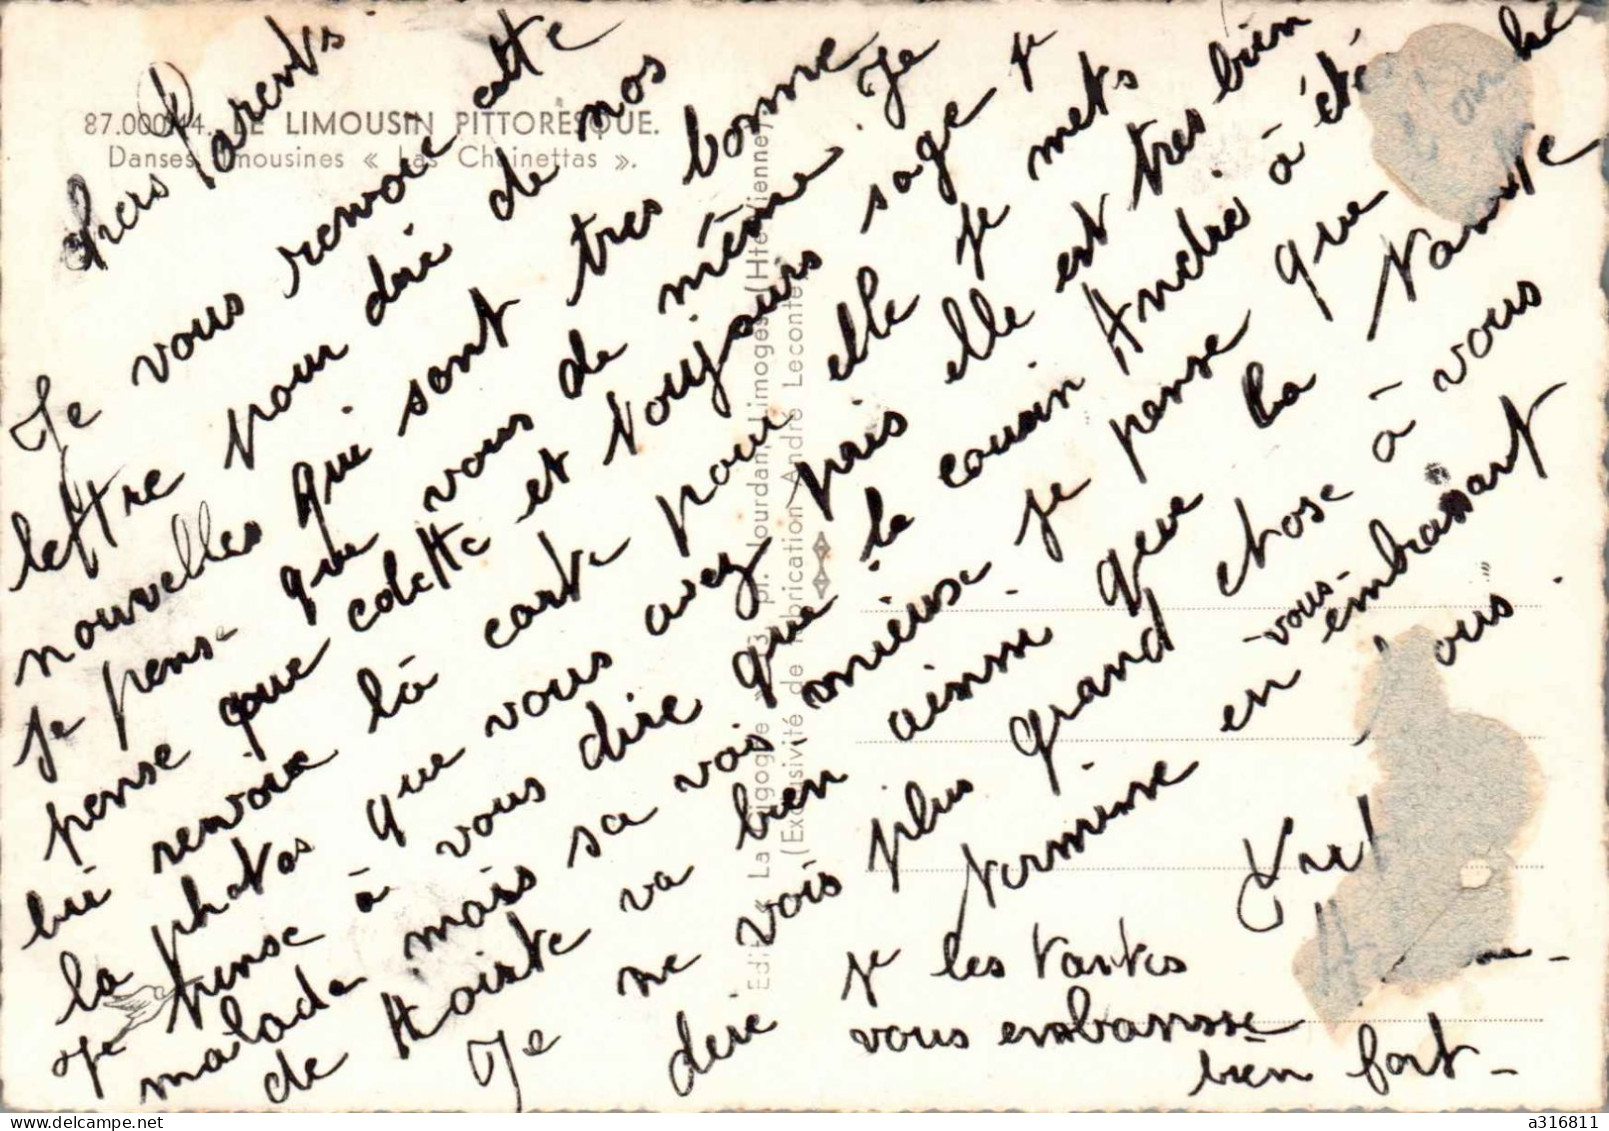 87.000.44. LE LIMOUSIN PITTORESQUE.
Danses Limousines « Las Chainettas ».
Chers Parents
Je vous renvoie cette
lettre pour deri de nos
nouvelles qui sont tres bonne
je pense que vous de même. Je
pense que colette et toujours sage je
lui renvoie là carte pour elle je mets
la photos que vous avez pris elle est tres bien
Je pense à vous dire que le cousin André à été
malade mais sa vois mieuse. je pense que
de Hointe va bien ainsie que la Nante
Je ne vois plus grand chose à vous
dire je termine en vous embrassant
les tantes
vous embransse
bien fort-
Edit. « La Cigogne » 3, pl. Jourdan, Limoges (Hte-Vienne)
(Exclusivité de fabrication André Leconte)
a316811